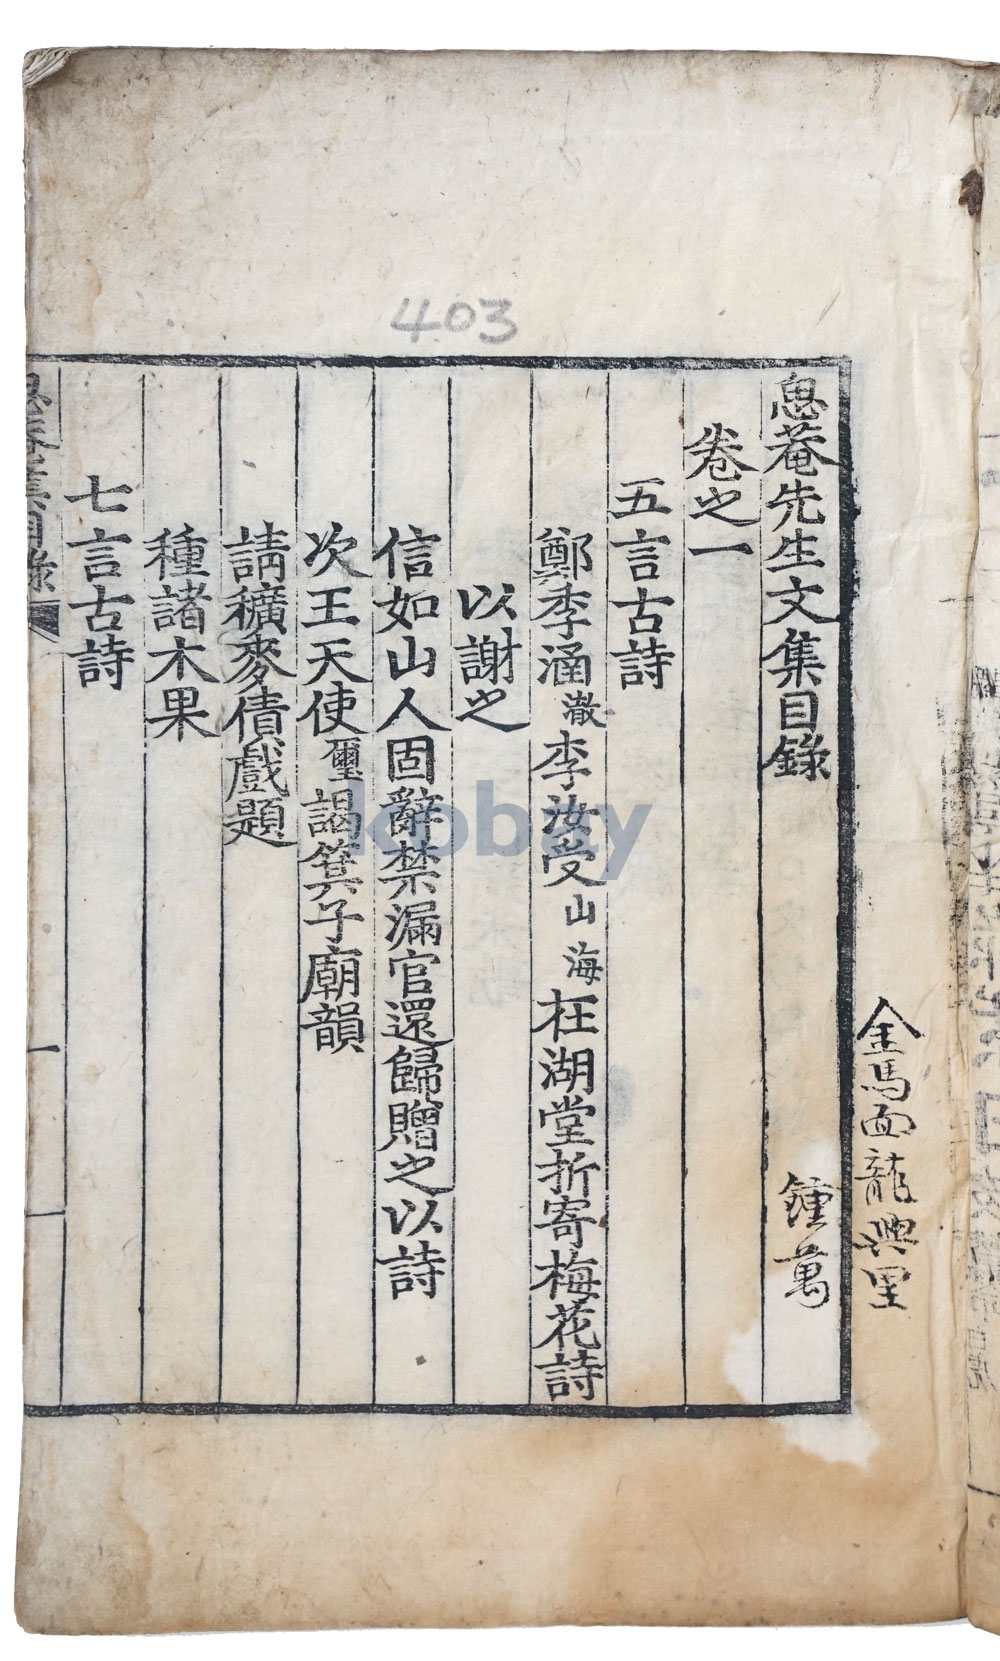 403
金馬面龍興里
鍾萬
息菴先生文集目錄
卷之一
五言古詩
鄭季涵澈李汝受山海枉湖堂折寄梅花詩
以謝之
信如山人固辭禁漏官還歸贈之以詩
次王天使璽謁箕子廟韻
請穬麥債戲題
種諸木果
七言古詩
息菴集目錄
一
kobay